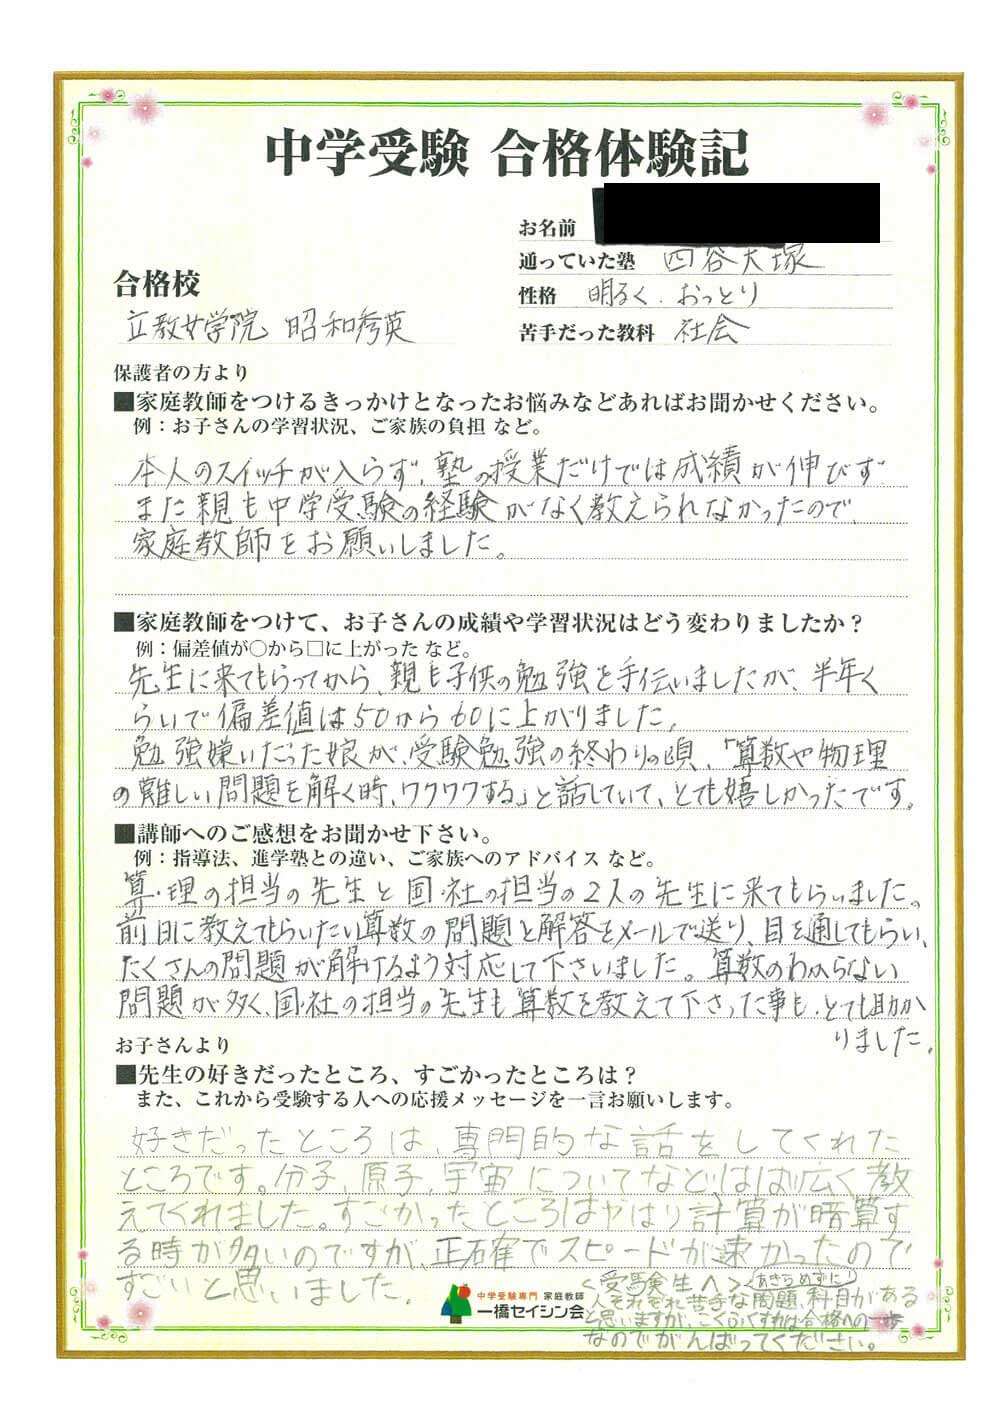 中学受験 合格体験記
お名前
通っていた塾 四谷大塚
性格 明るく、おっとり
苦手だった教科 社会
合格校
立教女学院 昭和秀英
保護者の方より
■家庭教師をつけるきっかけとなったお悩みなどあればお聞かせください。
例：お子さんの学習状況、ご家族の負担 など。
本人のスイッチが入らず、塾の授業だけでは成績が伸びず
また親も中学受験の経験がなく教えられなかったので、
家庭教師をお願いしました。
■家庭教師をつけて、お子さんの成績や学習状況はどう変わりましたか？
例：偏差値が○から□に上がった など。
先生に来てもらってから、親も子供の勉強を手伝いましたが、半年く
らいで偏差値は50から60に上がりました。
勉強嫌いだった娘が、受験勉強の終わりの頃、「算数や物理
の難しい問題を解く時、ワクワクする」と話していて、とても嬉しかったです。
■講師へのご感想をお聞かせ下さい。
例：指導法、進学塾との違い、ご家族へのアドバイス など。
算・理の担当の先生と国・社の担当の2人の先生に来てもらいました。
前日に教えてもらいたい算数の問題と解答をメールで送り、目を通してもらい、
たくさんの問題が解けるよう対応して下さいました。算数のわからない
問題が多く、国・社の担当の先生も算数を教えて下さった事も、とても助か
りました。
お子さんより
■先生の好きだったところ、すごかったところは？
また、これから受験する人への応援メッセージを一言お願いします。
好きだったところは、専門的な話をしてくれた
ところです。分子、原子、宇宙についてなど、はば広く教
えてくれました。すごかったところはやはり計算が暗算す
る時が多いのですが、正確でスピードが速かったので
すごいと思いました。
＜受験生へ＞ あきらめずに
人それぞれ苦手な問題、科目がある
と思いますが、こくふくすれば合格への一歩
なのでがんばってください。
中学受験専門 家庭教師
一橋セイシン会